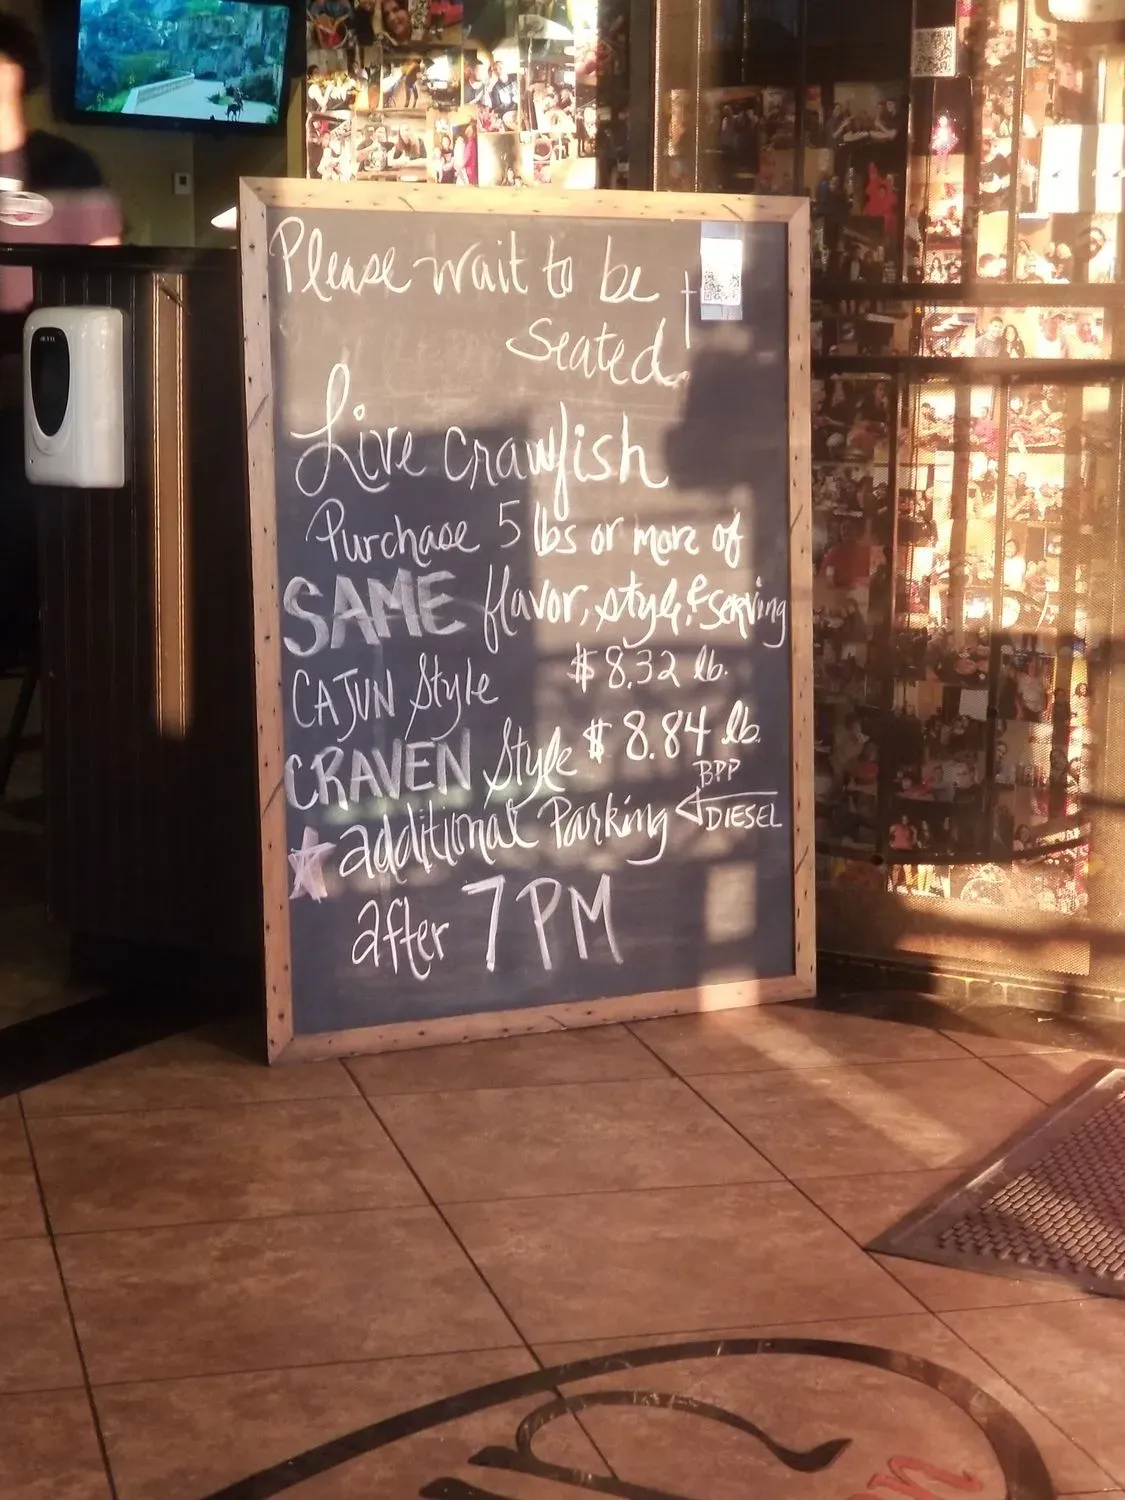 Please wait to be
Seated!
Live Crawfish
Purchase 5 lbs or more of
SAME flavor, style, & serving
CAJUN Style $8.32 lb.
CRAVEN Style $8.84 lb.
BPP
additional Parking DIESEL
after 7 PM